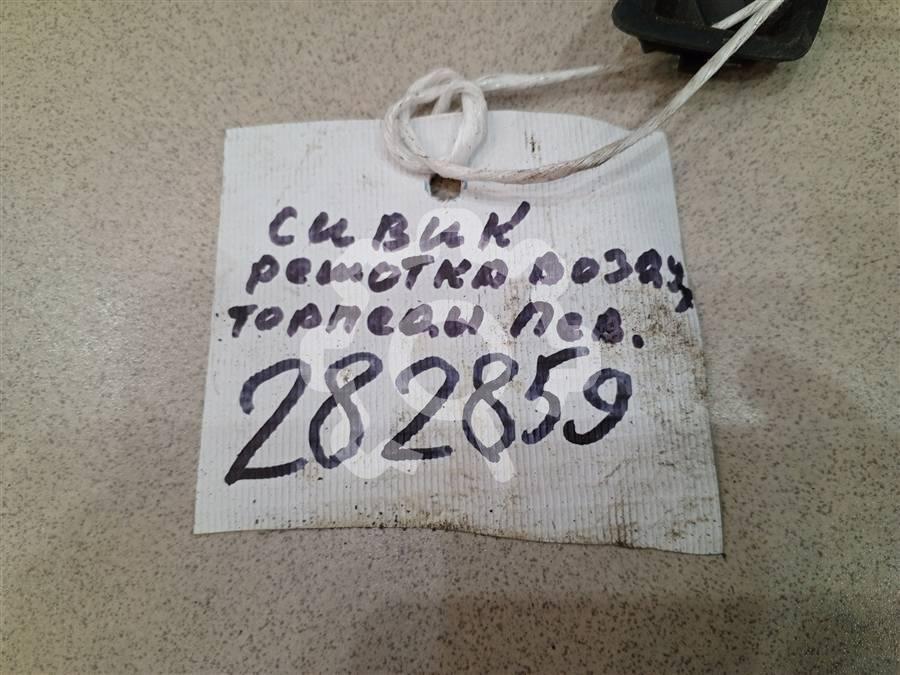 сивик
решотка возду
торпеды лев.
282859